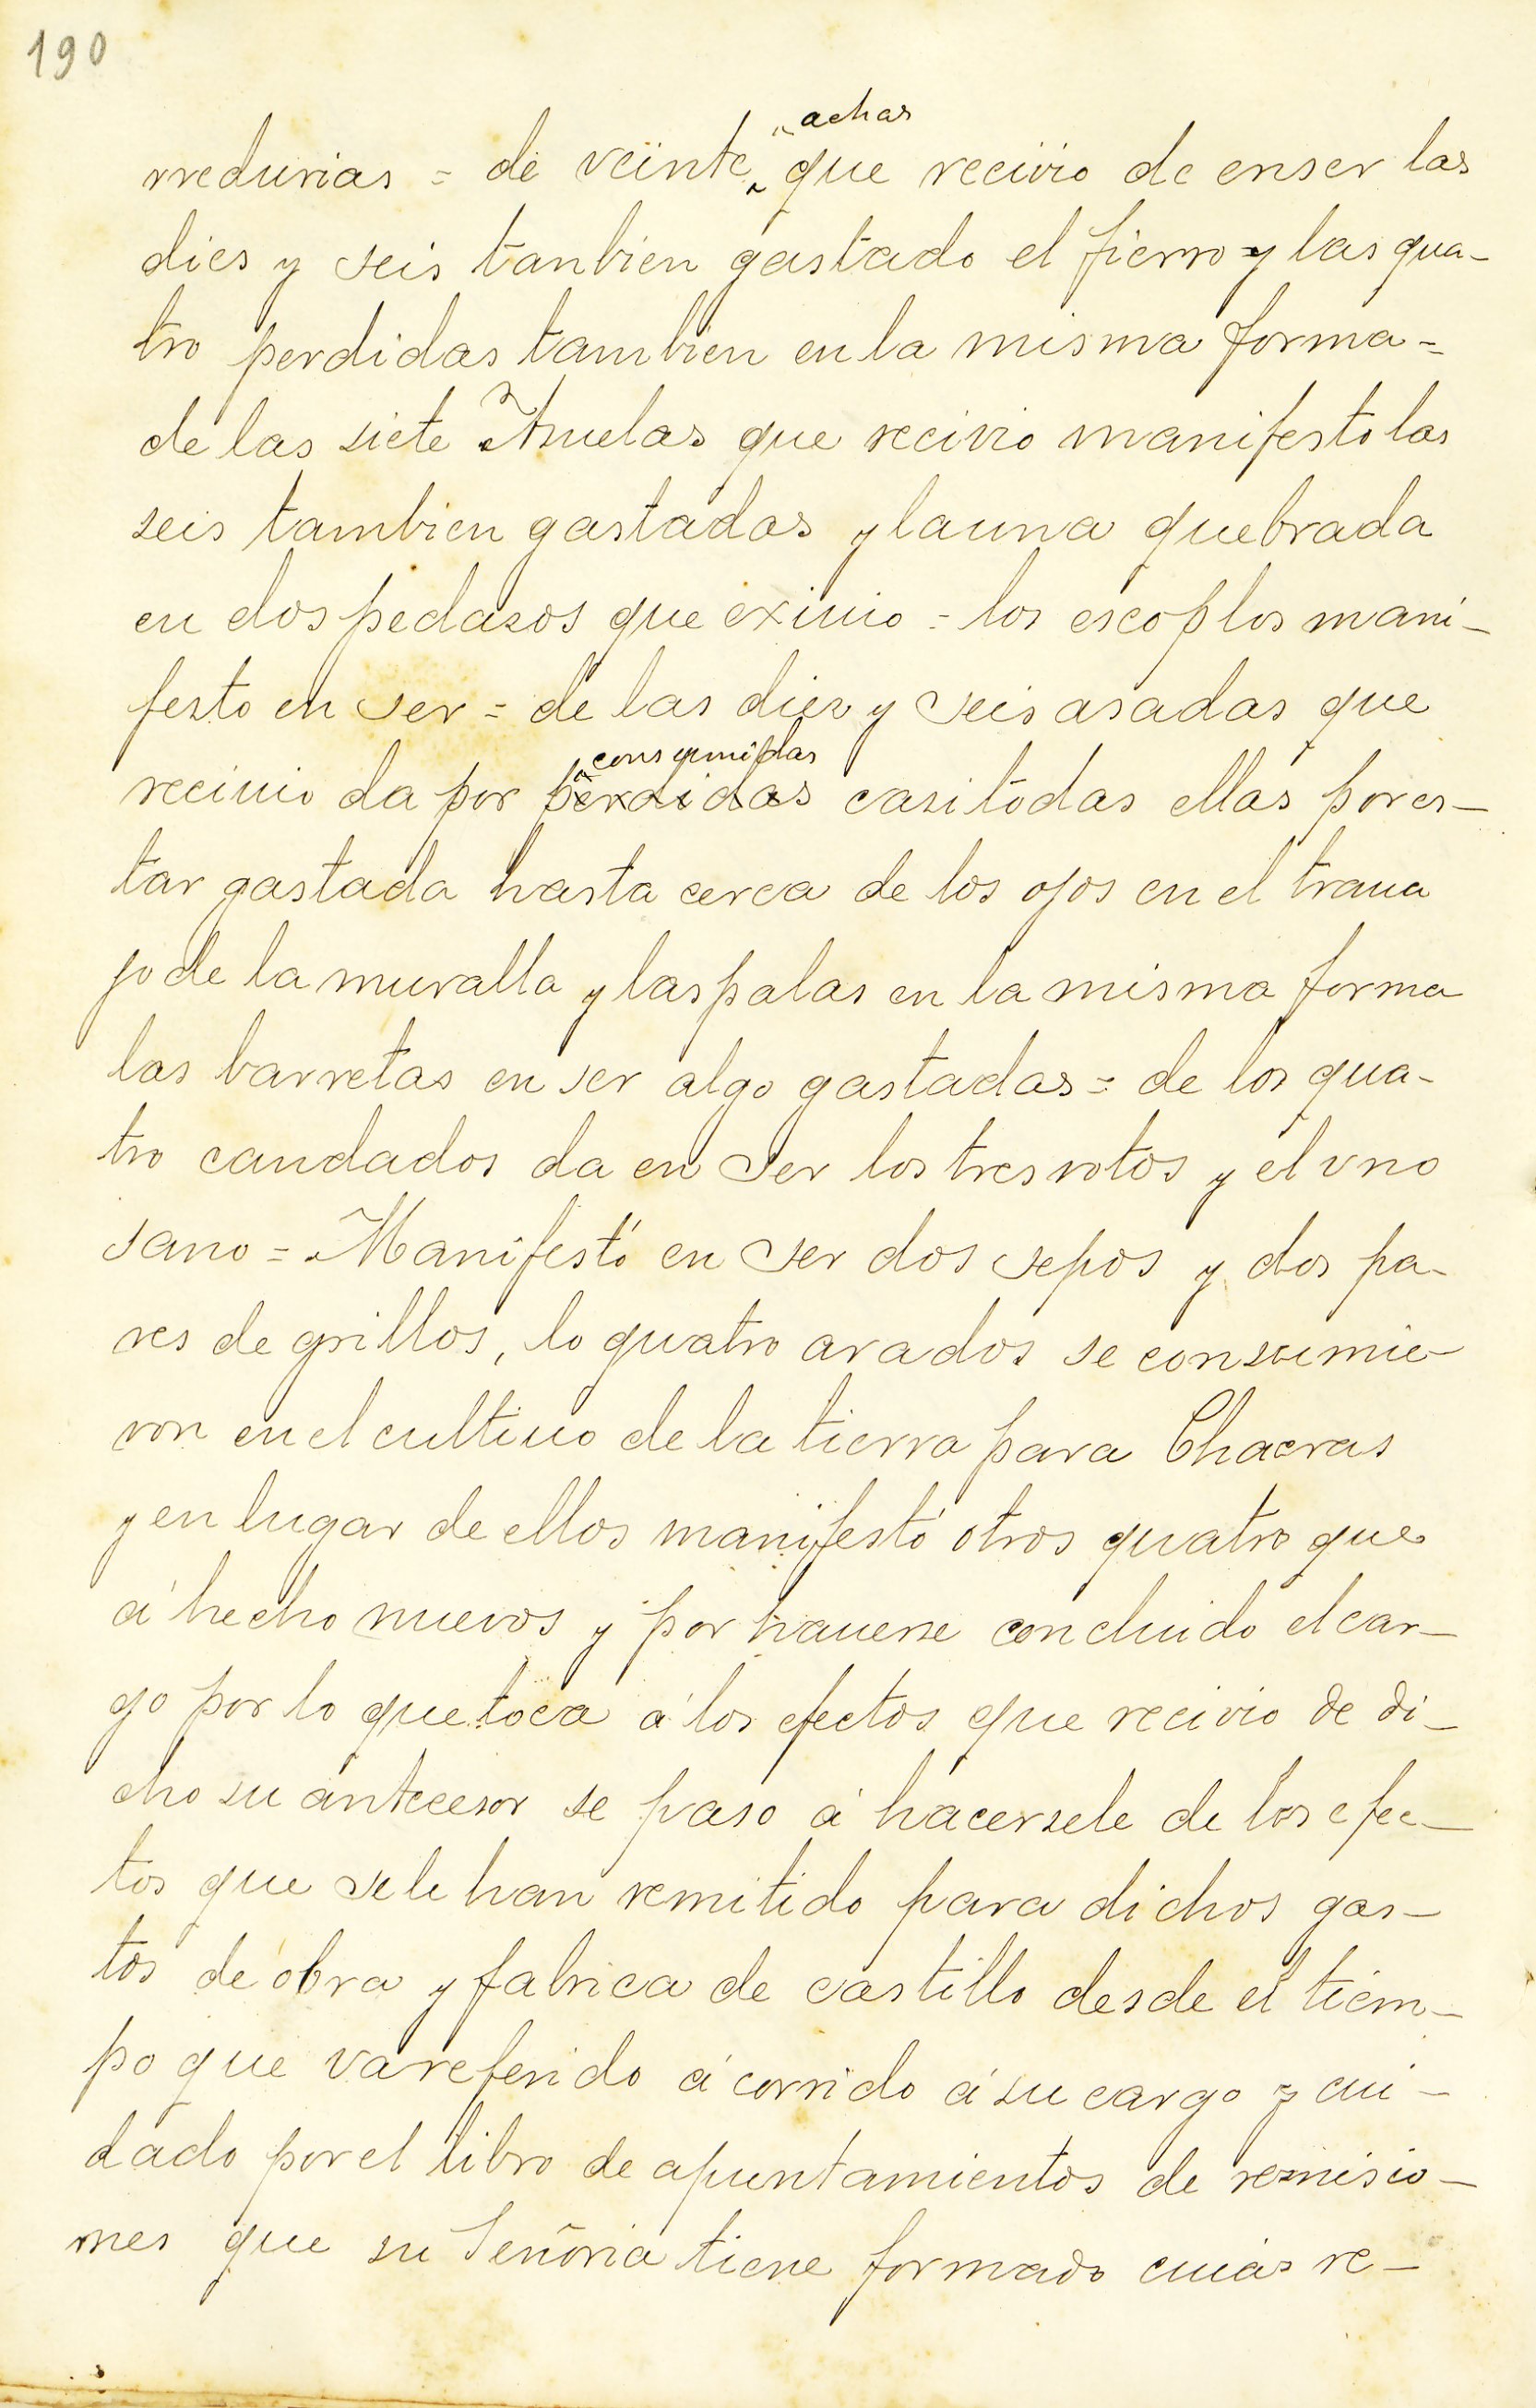 190
achas
rredurias = de veinte que recivio de enser las
dies y seis tanbien gastado el fierro y las qua-
tro perdidas tambien en la misma forma =
de las siete Asuelas que recivio manifesto las
seis tambien gastados y launa quebrada
en dos pedasos que exiuio = los escoplos mani-
festo en ser = de las diez y seis asadas que
consumidas
reciuio da por perdidas casi todas ellas por es-
tar gastada hasta cerca de los ojos en el traua
jo de la muralla y las palas en la misma forma
las barretas en ser algo gastadas = de los qua-
tro candados da en ser los tres rotos y el vno
sano = Manifestó en ser dos sepos y dos pa-
res de grillos, lo quatro arados se consumie-
ron en el cultiuo de la tierra para Chacras
y en lugar de ellos manifestó otros quatro que
á hecho nuevos y por hauerse concluido el car-
go por lo que toca á los efectos que recivio de di-
cho su antecesor se paso á hacersele de los efec-
tos que sele han remitido para dichos gas-
tos de obra y fabrica de castillo desde el tiem-
po que va referido á corrido á su cargo y cui-
dado por el libro de apuntamientos de remisio-
nes que su Señoria tiene formado cuias re-